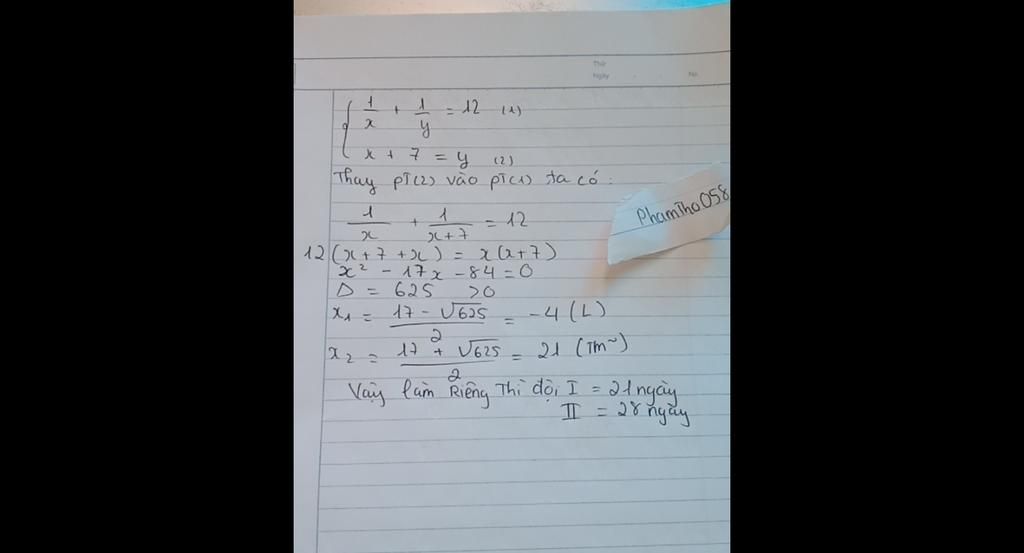 Thứ
Ngày No.
{ 1/x + 1/y = 12 (1)
x + 7 = y (2)
Thay pT(2) vào pT(1) ta có:
1/x + 1/(x+7) = 12
PhamTho058
12(x+7+x) = x(x+7)
x² - 17x - 84 = 0
Δ = 625 >0
x₁ = (17 - √625)/2 = -4 (L)
x₂ = (17 + √625)/2 = 21 (Tm~)
Vậy làm Riêng Thì đội I = 21 ngày
II = 28 ngày